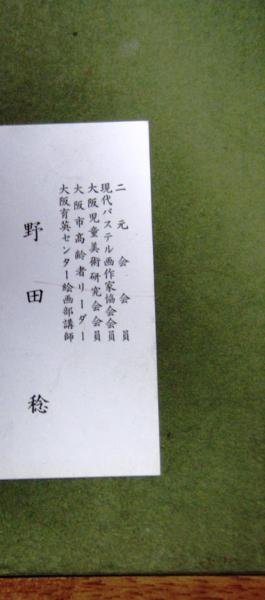 二元会会員
現代パステル画作家協会会員
大阪児童美術研究会会員
大阪市高齢者リーダー
大阪育英センター絵画部講師
野田 稔